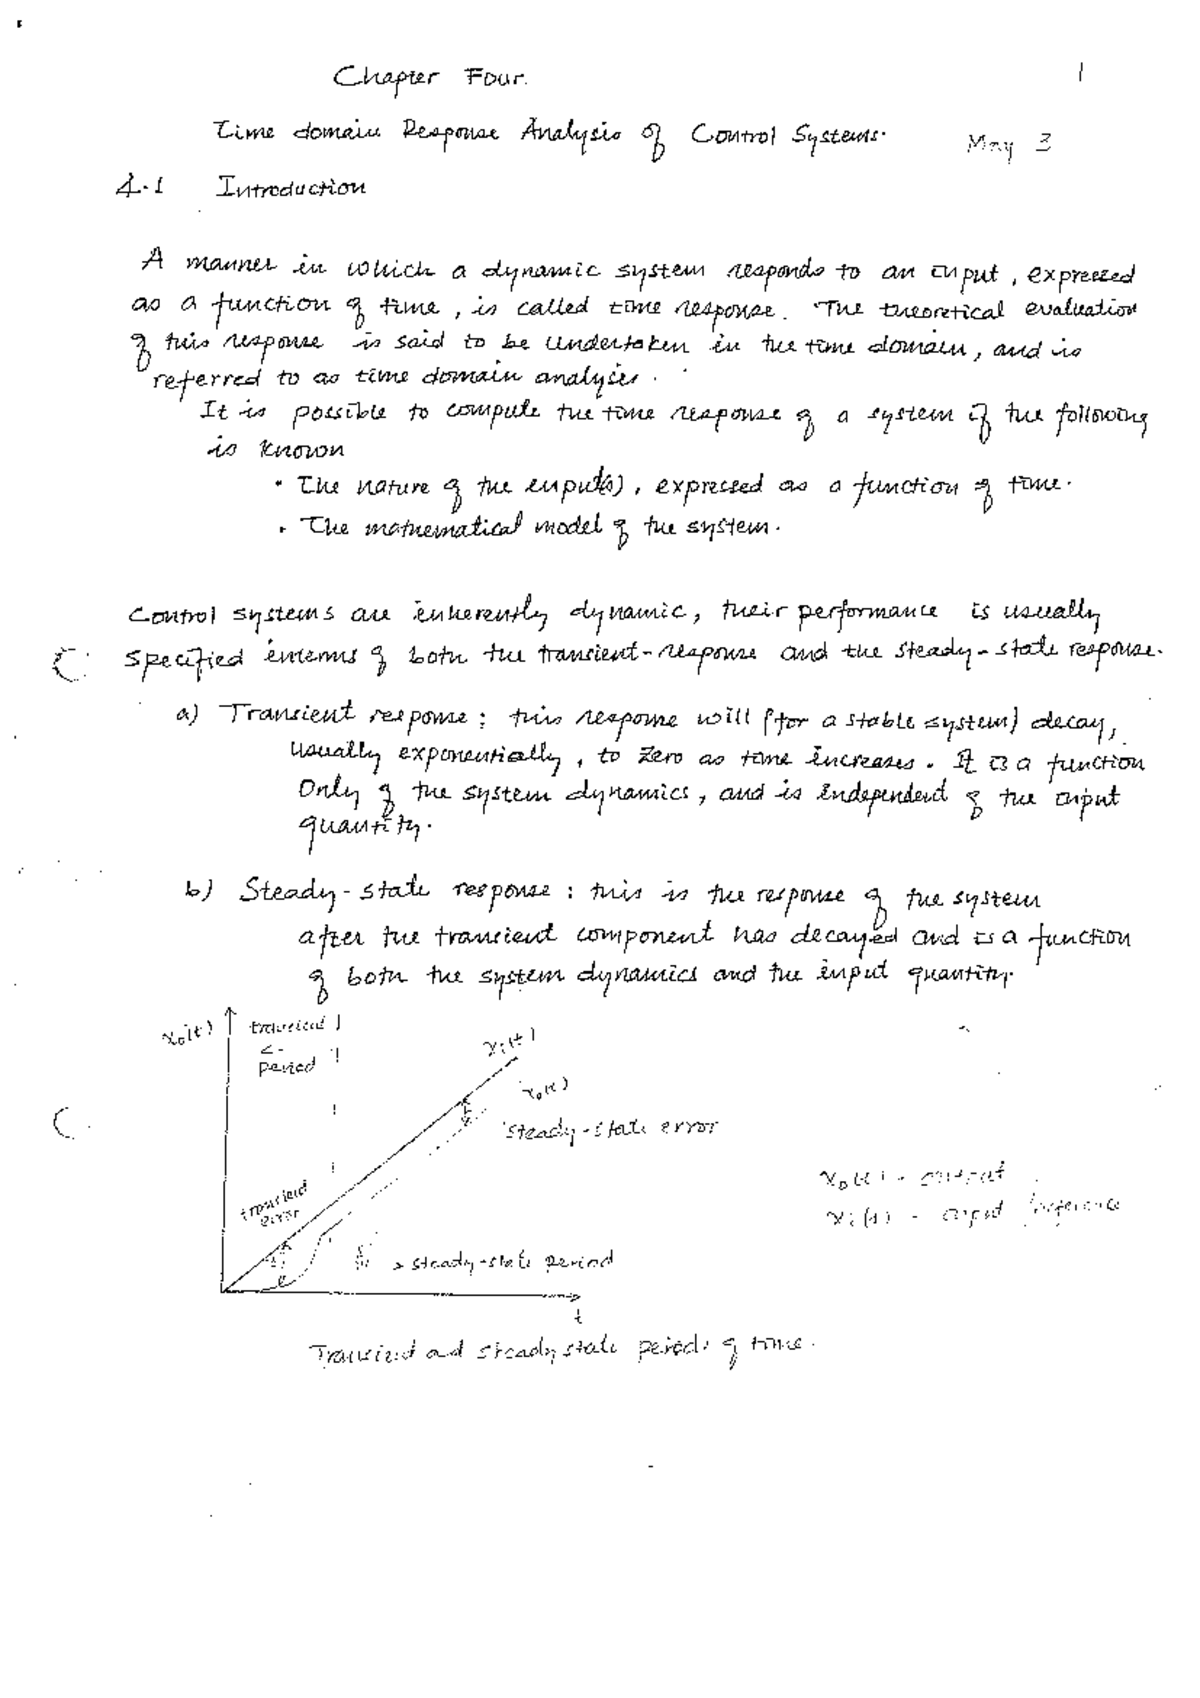 1
Chapter Four.
Time domain Response Analysis of Control Systems.
May 3
4.1 Introduction
A manner in which a dynamic system responds to an input, expressed
as a function of time, is called time response. The theoretical evaluation
of this response is said to be undertaken in the time domain, and is
referred to as time domain analysis.
It is possible to compute the time response of a system if the following
is known
• The nature of the input(s), expressed as a function of time.
• The mathematical model of the system.
Control systems are inherently dynamic, their performance is usually
specified interms of both the transient-response and the steady-state response.
a) Transient response: this response will (for a stable system) decay,
usually exponentially, to zero as time increases. It is a function
Only of the system dynamics, and is independent of the input
quantity.
b) Steady-state response: this is the response of the system
after the transient component has decayed and is a function
of both the system dynamics and the input quantity.
x₀(t)
transient
period
xᵢ(t)
x₀(t)
steady-state error
x₀(t) - output
xᵢ(t) - input reference
transient
error
steady-state period
t
Transient and steady state periods of time.